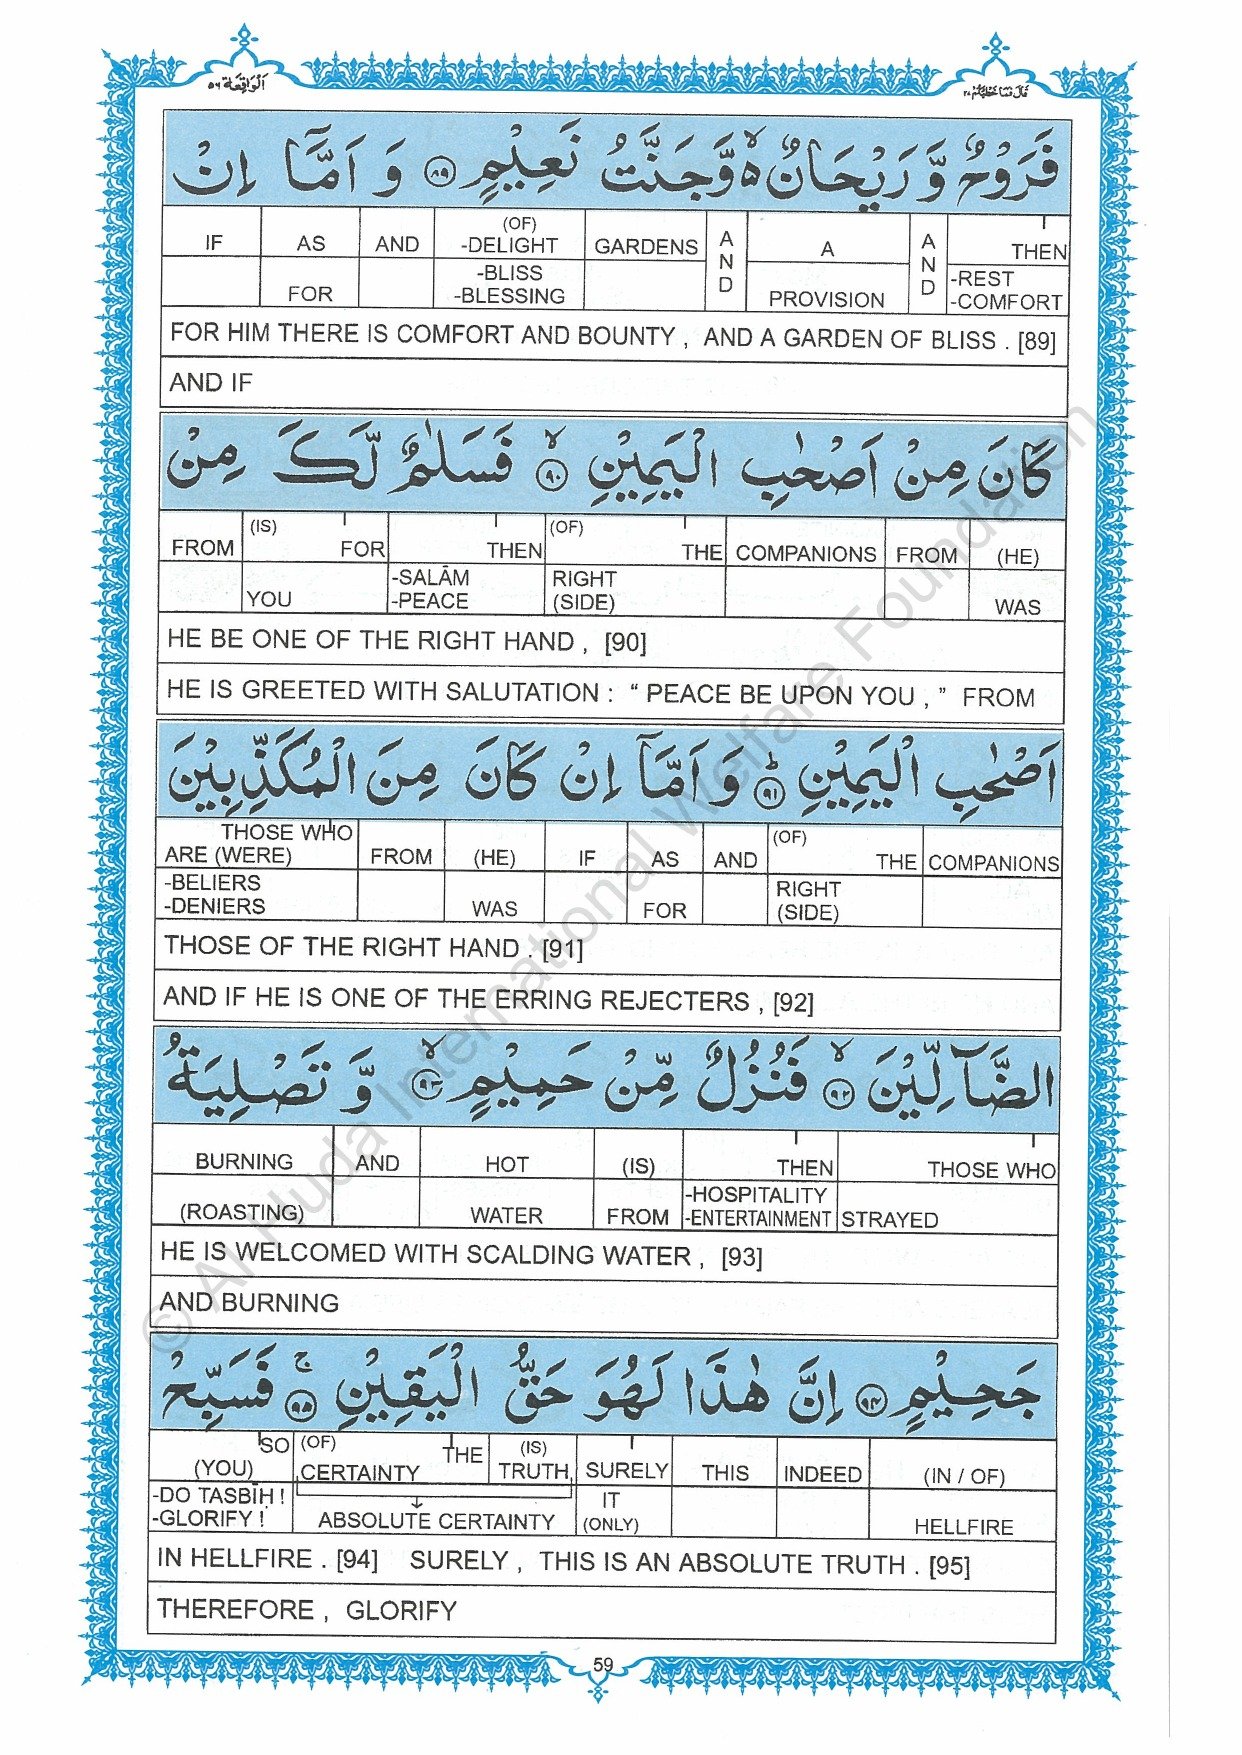 اَلْوَاقِعَة ٥٦
قَالَ فَمَا خَطْبُكُمْ ٢٧
فَرَوْحٌ وَّ رَيْحَانٌ ۙ۬ وَّ جَنَّتُ نَعِيْمٍ ﴿٨٩﴾ وَ اَمَّاۤ اِنْ
IF AS AND (OF) -DELIGHT GARDENS AND A AND THEN
FOR -BLISS -BLESSING PROVISION -REST -COMFORT
FOR HIM THERE IS COMFORT AND BOUNTY , AND A GARDEN OF BLISS . [89]
AND IF
كَانَ مِنْ اَصْحٰبِ الْيَمِيْنِ ﴿٩٠﴾ۙ فَسَلٰمٌ لَّكَ مِنْ
FROM (IS) FOR THEN (OF) THE COMPANIONS FROM (HE)
YOU -SALĀM -PEACE RIGHT (SIDE) WAS
HE BE ONE OF THE RIGHT HAND , [90]
HE IS GREETED WITH SALUTATION : “ PEACE BE UPON YOU , ” FROM
اَصْحٰبِ الْيَمِيْنِ ﴿٩١﴾ؕ وَ اَمَّاۤ اِنْ كَانَ مِنَ الْمُكَذِّبِيْنَ
THOSE WHO ARE (WERE) FROM (HE) IF AS AND (OF) THE COMPANIONS
-BELIERS -DENIERS WAS FOR RIGHT (SIDE)
THOSE OF THE RIGHT HAND . [91]
AND IF HE IS ONE OF THE ERRING REJECTERS , [92]
الضَّآلِّيْنَ ﴿٩٢﴾ۙ فَنُزُلٌ مِّنْ حَمِيْمٍ ﴿٩٣﴾ۙ وَّ تَصْلِيَةُ
BURNING AND HOT (IS) THEN THOSE WHO
(ROASTING) WATER FROM -HOSPITALITY -ENTERTAINMENT STRAYED
HE IS WELCOMED WITH SCALDING WATER , [93]
AND BURNING
جَحِيْمٍ ﴿٩٤﴾ اِنَّ هٰذَا لَهُوَ حَقُّ الْيَقِيْنِ ﴿٩٥﴾ۚ فَسَبِّحْ
SO (YOU) (OF) CERTAINTY THE (IS) TRUTH SURELY THIS INDEED (IN / OF)
-DO TASBĪḤ ! -GLORIFY ! ABSOLUTE CERTAINTY IT (ONLY) HELLFIRE
IN HELLFIRE . [94] SURELY , THIS IS AN ABSOLUTE TRUTH . [95]
THEREFORE , GLORIFY
59
© Al Huda International Welfare Foundation